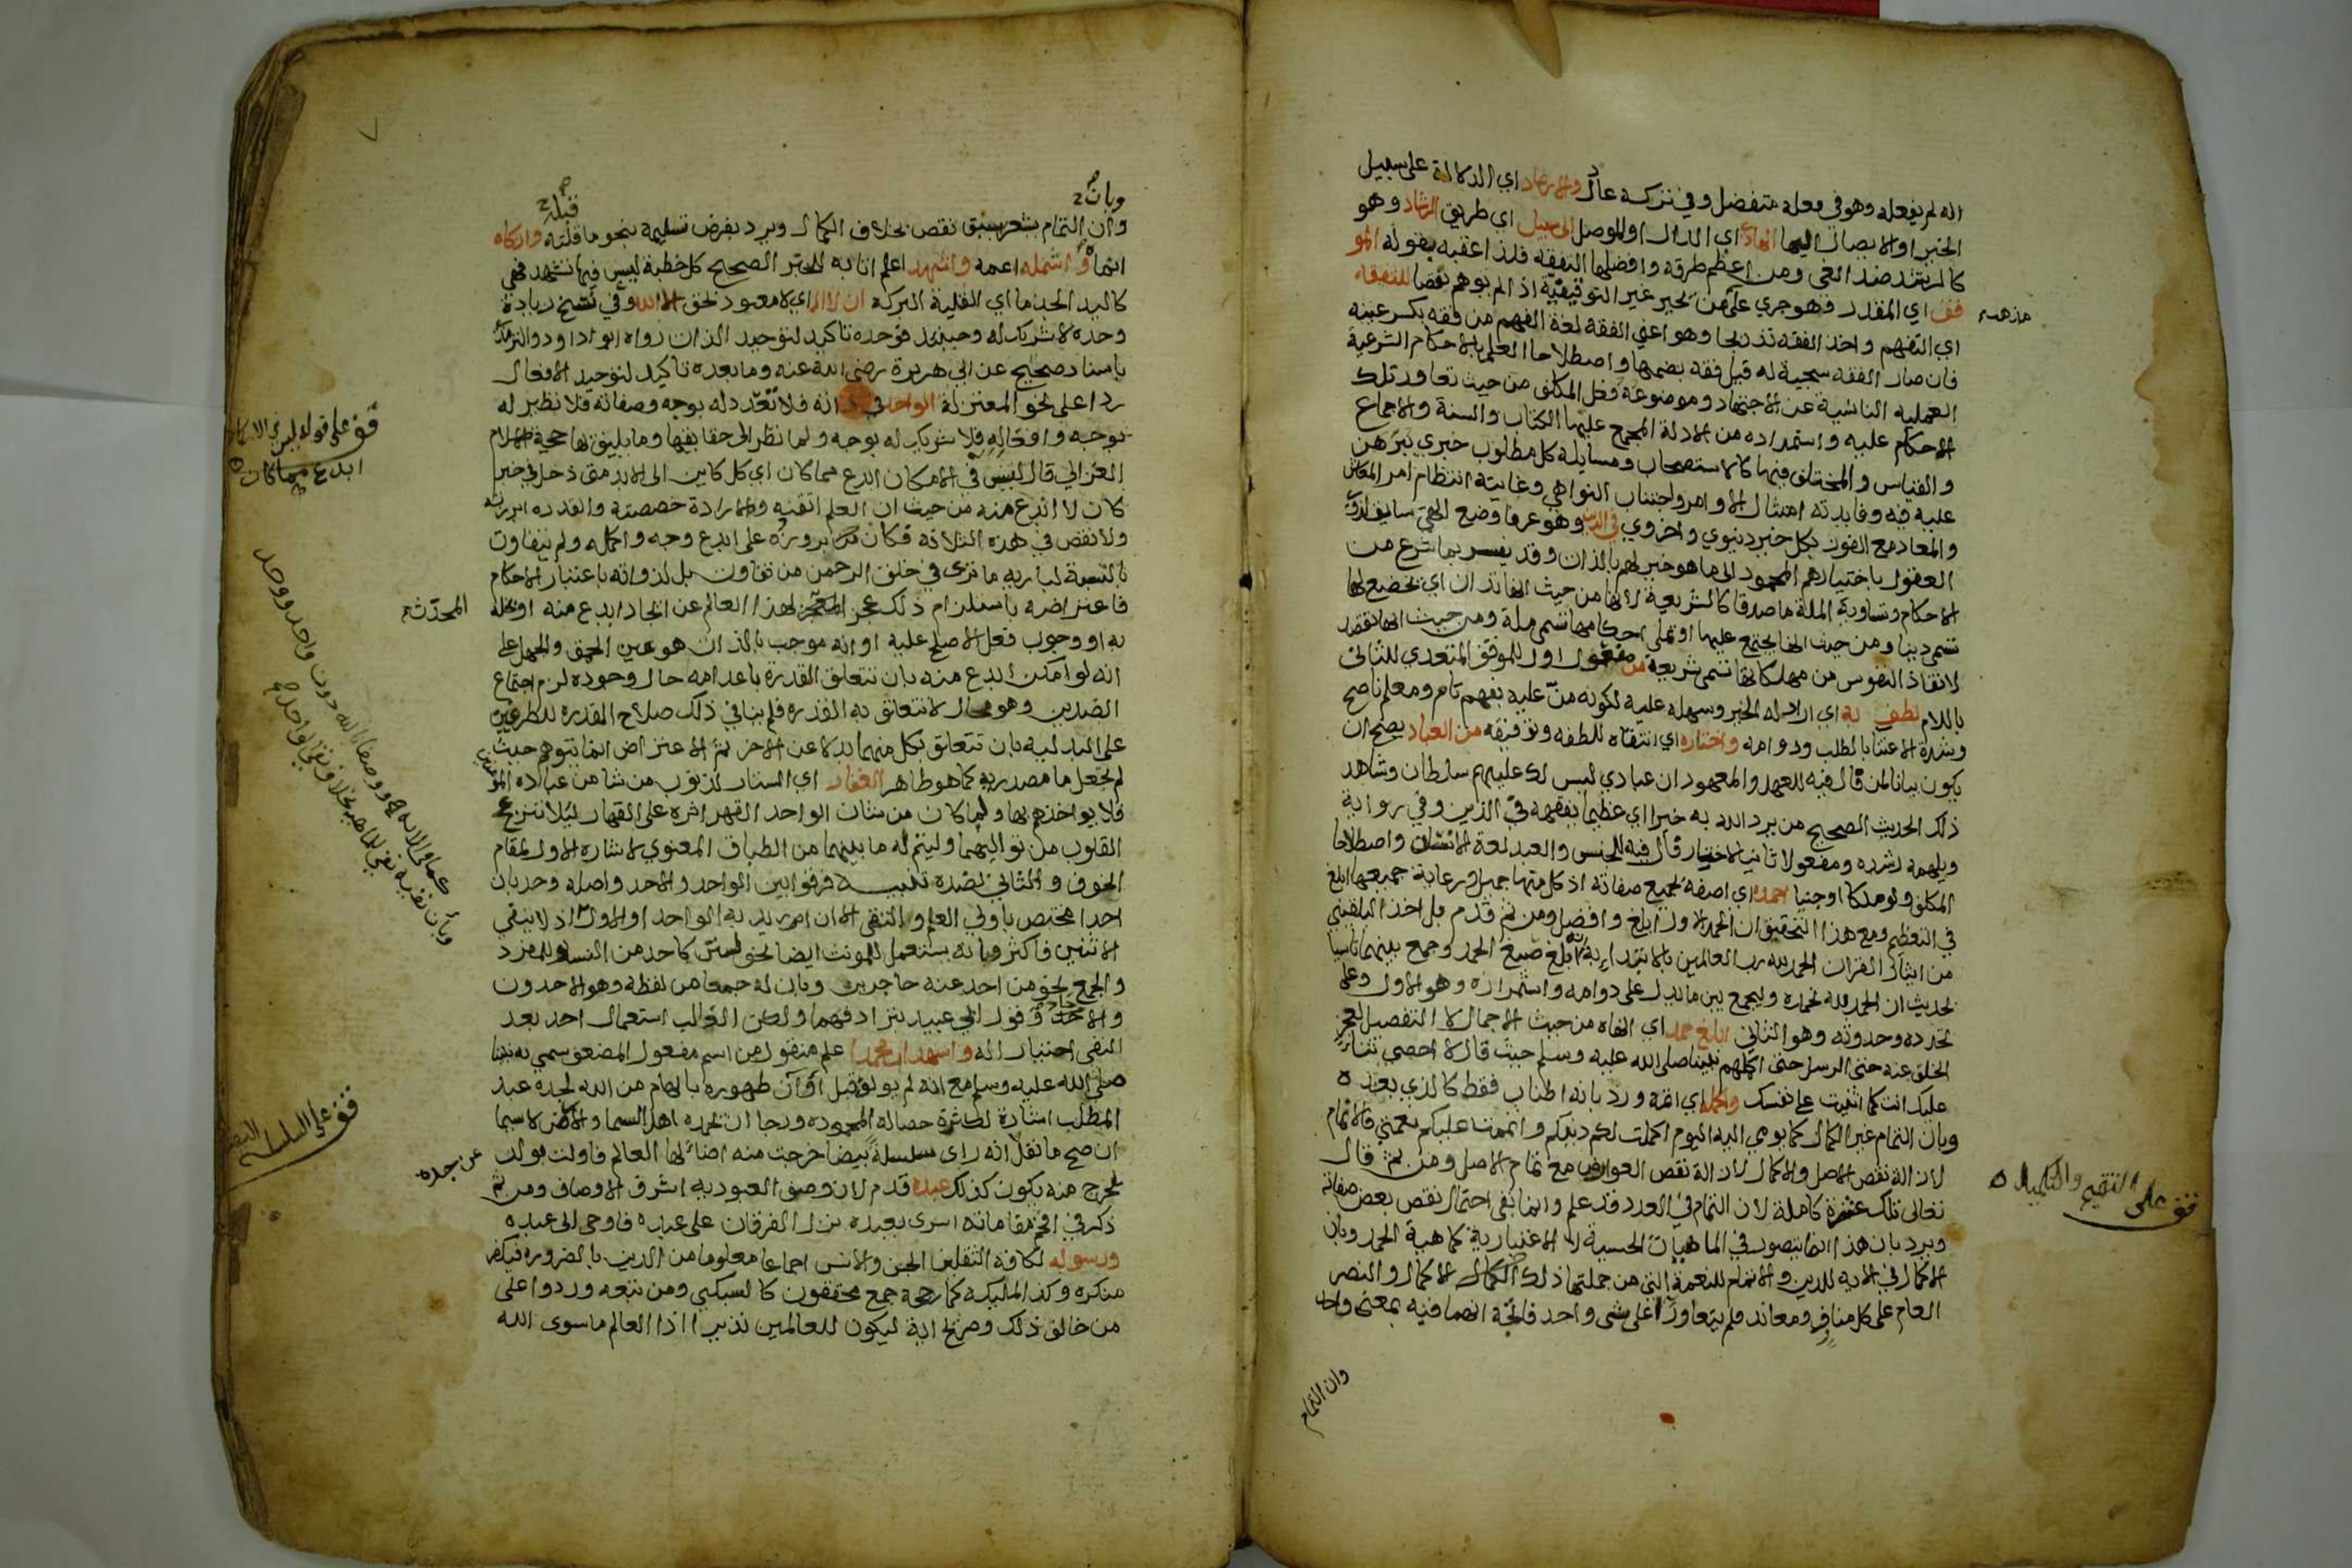 انه لم يفعله وهو في فعله متفضل وفي تركه عادل والارشاد اي الدلالة على سبيل
الخير او الايصال اليها الهادي اي الدال او الموصل الى سبيل اي طريق الرشاد وهو
كالرشد ضد الغي ومن اعظم طرقه وافضلها التفقه فلذا اعقبه بقوله المو
فق اي المقدر فهو جري على من يجيز غير التوقيفية اذا لم يوهم نقصا للتفقه
مذهب
اي التفهم واخذ الفقه تدريجا وهو اعني الفقه لغة الفهم من فقه بكسر عينه
فان صار الفقه سجية له قيل فقه بضمها واصطلاحا العلم بالاحكام الشرعية
العمليه الناشية عن الاجتهاد وموضوعه فعل المكلف من حيث تعاور تلك
الاحكام عليه واستمداده من الادلة المجمع عليها الكتاب والسنة والاجماع
والقياس والمختلف فيها كالاستصحاب ومسايله كل مطلوب خبري يبرهن
عليه فيه وفايدته امتثال الاوامر واجتناب النواهي وغايته انتظام امر المعاش
والمعاد مع الفوز بكل خير دنيوي واخروي في الدين وهو عرفا وضع الهي سايق لذوي
العقول باختيارهم المحمود الى ما هو خير لهم بالذات وقد يفسر بما شرع من
الاحكام وتساويه الملة ماصدقا كالشريعة لانها من حيث انها تدان اي تخضع لها
تسمى دينا ومن حيث انها يجتمع عليها او تملى احكامها تسمى ملة ومن حيث انها تقصد
لانقاذ النفوس من مهلكاتها تسمى شريعة من مفعول اول للموفق المتعدي للثاني
باللام لطف به اي اراد له الخير وسهله عليه لكونه من عليه بفهم تام ومعلم ناصح
وشدة الاعتنا بالطلب ودوامه واختاره اي انتقاه للطفه وتوفيقه من العباد يصح ان
يكون بيانا لمن فال فيه للعهد والمعهود ان عبادي ليس لك عليهم سلطان وشاهد
ذلك الحديث الصحيح من يرد الله به خيرا اي عظيما يفقهه في الدين وفي رواية
ويلهمه رشده ومفعولا ثانيا لاختار فال فيه للجنس والعبد لغة الانسان واصطلاحا
المكلف ولو ملكا او جنيا احمده اي اصفه بجميع صفاته اذ كل منها جميل ورعاية جميعها ابلغ
في التعظيم ومع هذا التحقيق ان الحمد الاول ابلغ وافضل ومن ثم قدم بل اخذ البلقيني
من ايثار القران الحمد لله رب العالمين بالابتداء به انه ابلغ صيغ الحمد وجمع بينهما تاسيا
بحديث ان الحمد لله نحمده وليجمع بين ما يدل على دوامه واستمراره وهو الاول وعلى
تجدده وحدوثه وهو الثاني ابلغ حمد اي انهاه من حيث الاجمال لا التفصيل لعجز
الخلق عنه حتى الرسل حتى اكملهم نبينا صلى الله عليه وسلم حيث قال لا احصي ثناء
عليك انت كما اثنيت على نفسك واكمله اي اتمه ورد بانه اطناب فقط كالذي بعده
وبان التمام غير الكمال كما يومي اليه اليوم اكملت لكم دينكم واتممت عليكم نعمتي فالاتمام
لازالة نقص الاصل والاكمال لازالة نقص العوارض مع تمام الاصل ومن ثم قال
قف على التتميم والتكميل
تعالى تلك عشرة كاملة لان التمام في العدد قد علم وانما بقي احتمال نقص بعض صفاته
ويرد بان هذا انما يتصور في الماهيات الحسية لا الاعتبارية كماهية الحمد وبان
الاكمال في الاية للدين والاتمام للنعمة التي من جملتها ذلك الكمال الاكمال والنصر
العام على كل مناف ومعاند فلم يتعاورا على شي واحد فالمتجه انهما فيه بمعنى واحد
وان التمام
وبان
قبله
وان التمام يشعر بسبق نقص بخلاف الكمال ويرد بفرض تسليمه بنحو ما قلته وازكاه
انماه واشمله اعمه واشهد اعلم اتا به للخبر الصحيح كل خطبة ليس فيها تشهد فهي
كاليد الجذما اي القليلة البركة ان لا اله اي لا معبود بحق الا الله وفي نسخ زيادة
وحده لا شريك له وحينئذ فوحده تاكيد لتوحيد الذات رواه ابو داود والترمذي
باسناد صحيح عن ابي هريرة رضي الله عنه وما بعده تاكيد لتوحيد الافعال
ردا على نحو المعتزلة الواحد في ذاته فلا تعدد له بوجه وصفاته فلا نظير له
بوجه وافعاله فلا شريك له بوجه ولما نظر الى حقايقها وما يليق بها حجة الاسلام
الغزالي قال ليس في الامكان ابدع مما كان اي كل كاين الى الابد متى دخل في حيز
قف على قوله ليس في الامكان
ابدع مما كان
كان لا ابدع منه من حيث ان العلم اتقنه والارادة خصصته والقدرة ابرزته
ولا نقص في هذه الثلاثة فكان بروزه على ابدع وجه واكمله ولم يتفاوت
بالنسبة لباريه ما ترى في خلق الرحمن من تفاوت بل لذواته باعتبار الاحكام
فاعتراضه باستلزام ذلك عجز المعجز لهذا العالم عن ايجاد ابدع منه او بخله
المحدثة
به او وجوب فعل الاصلح عليه او انه موجب بالذات هو عين الحمق والجهل على
انه لو امكن ابدع منه بان تتعلق القدرة باعدامه حال وجوده لزم اجتماع
الضدين وهو محال لا تتعلق به القدرة فلم ينافي ذلك صلاح القدرة للطرفين
على البدلية بان تتعلق بكل منهما بدلا عن الاخر ثم الاعتراض انما يتوهم حيث
لم تجعل ما مصدرية كما هو ظاهر الغفار اي الستار لذنوب من شا من عباده المومنين
فلا يواخذهم بها ولما كان من شان الواحد القهر اثره على القهار ليلا تنزعج
القلوب من تواليهما وليتم له ما بينهما من الطباق المعنوي لاشارة الاول لمقام
الخوف والثاني لضده تنبيه فرقوا بين الواحد والاحد واصله وحد بان
احدا مختص باولي العلم وبالنفي الا ان اريد به الواحد او الاول اذ لا ينفي
الاثنين فاكثر وبانه يستعمل للمونث ايضا نحو لستن كاحد من النسا وللمفرد
والجمع نحو من احد عنه حاجزين وبان له جمعا من لفظه وهو الاحدون
والاحاد وقول ابي عبيد بترادفهما ولكن الغالب استعمال احد بعد
النفي اختيار له واشهد ان محمدا علم منقول من اسم مفعول المضعف سمي به نبينا
صلى الله عليه وسلم مع انه لم يولف قبل اوان ظهوره بالهام من الله لجده عبد
المطلب اشارة لكثرة خصاله المحمودة ورجا ان يحمده اهل السما والارض لاسيما
ان صح ما نقل انه راى سلسلة بيضا خرجت منه اضا لها العالم فاولت بولد
عن جده
قف على السلسلة
يخرج منه يكون كذلك عبده قدم لان وصف العبودية اشرف الاوصاف ومن ثم
ذكر في افخم مقاماته اسرى بعبده نزل الفرقان على عبده فاوحى الى عبده
ورسوله لكافة الثقلين الجن والانس اجماعا معلوما من الدين بالضرورة فيكفر
منكره وكذا الملايكة كما رجحه جمع محققون كالسبكي ومن تبعه وردوا على
من خالف ذلك وصريح اية ليكون للعالمين نذيرا اذ العالم ما سوى الله